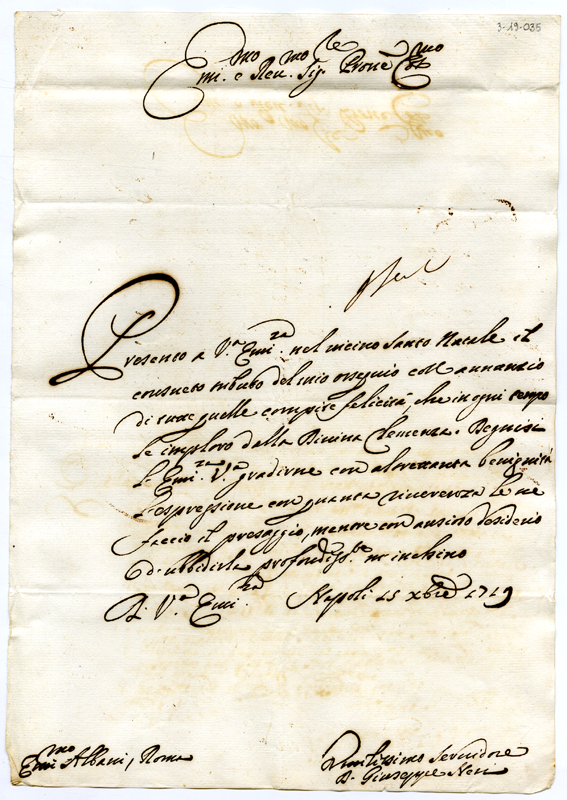 3-19-035
Emi.mo e Reu.mo Sig.re Prone
Presento a V.a Emi.za nel uicino Santo Natale il
consueto tributo del mio ossequio coll'annunzio
di tutte quelle compite felicità, che in ogni tempo
Le imploro dalla Diuina Clemenza. Degnisi
L'Emi.za V.a gradirne con altrettanta benignità
l'espressione con quanta riuerenza Le ne
faccio il presaggio, mentre con ansioso desiderio
d'ubbidirla profondiss.te m'inchino
Di V.a Emi.za Napoli 15 xbre 1719
Emi.mo Albani, Roma
Umilissimo Seruidore
D. Giuseppe Neri